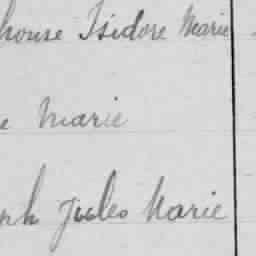 house Isidore Marie
e Marie
ph Jules Marie